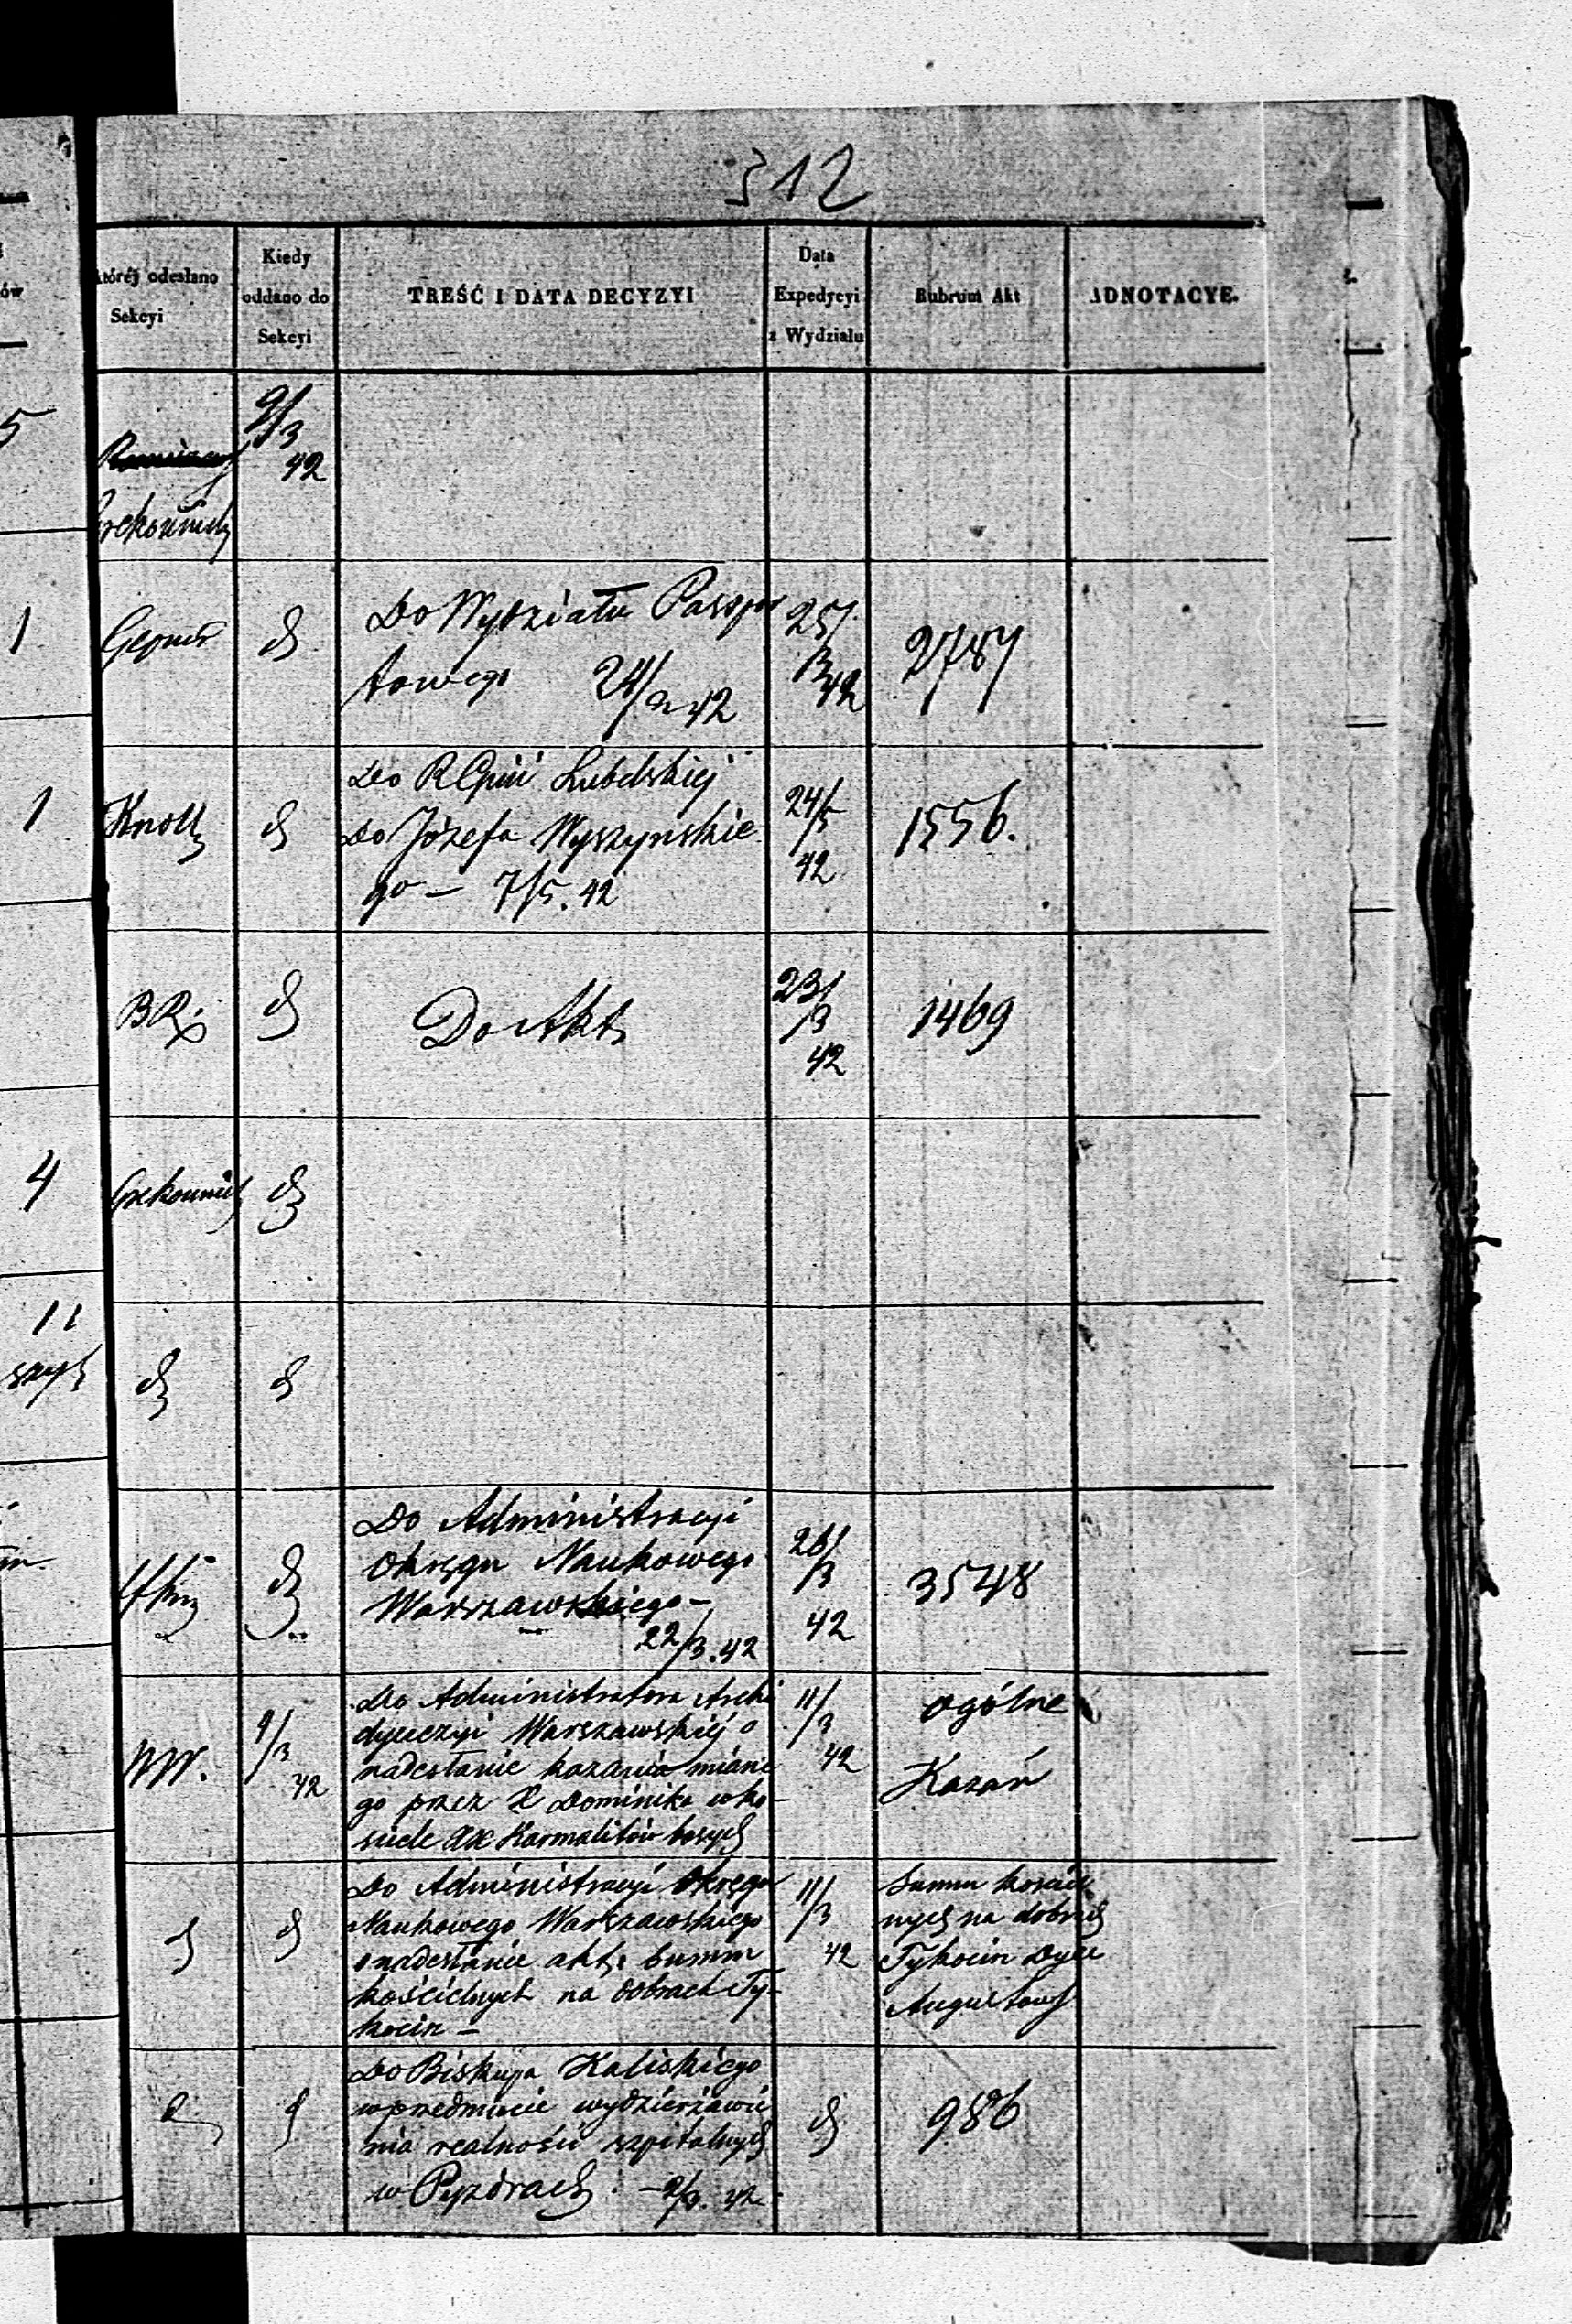 312
któréj odesłano
Sekcyi
Kiedy
oddano do
Sekcyi
TREŚĆ I DATA DECYZYI
Data
Expedycyi
z Wydziału
Rubrum Akt
ADNOTACYE.
9/3
42
Do Wydziału Paszpor
towego 24/3 42
25/
3 42
2787
Knoll
Do RGpiii Lubelskiej
Do Józefa Wyszyńskie
go — 7/5. 42
24/5
42
1556.
BR.
Do Akt
23/
3
42
1469
4
11
Do Administracyi
Okręgu Naukowego
Warszawskiego —
22/3.42
26/
3
42
3548
WW.
9/3
42
Do Administratora Archi
dyecezyi Warszawskiéj o
nadesłanie kazania miane
go przez X Dominika w ko-
ściele XX Karmelitów bosych
11/3
42
ogólne
Kazań
Do Administracyi Okręgu
Naukowego Warszawskiego
o nadesłanie akt: Summ
kościelnych na dobrach Ty-
kocin —
11/3
42
Summ kościel
nych na dobrach
Tykocin Dyec
Augustows
Do Biskupa Kaliskiego
w przedmiocie wydzierżawie
nia realności szpitalnych
w Pyzdrach. — 9/3. 42
986